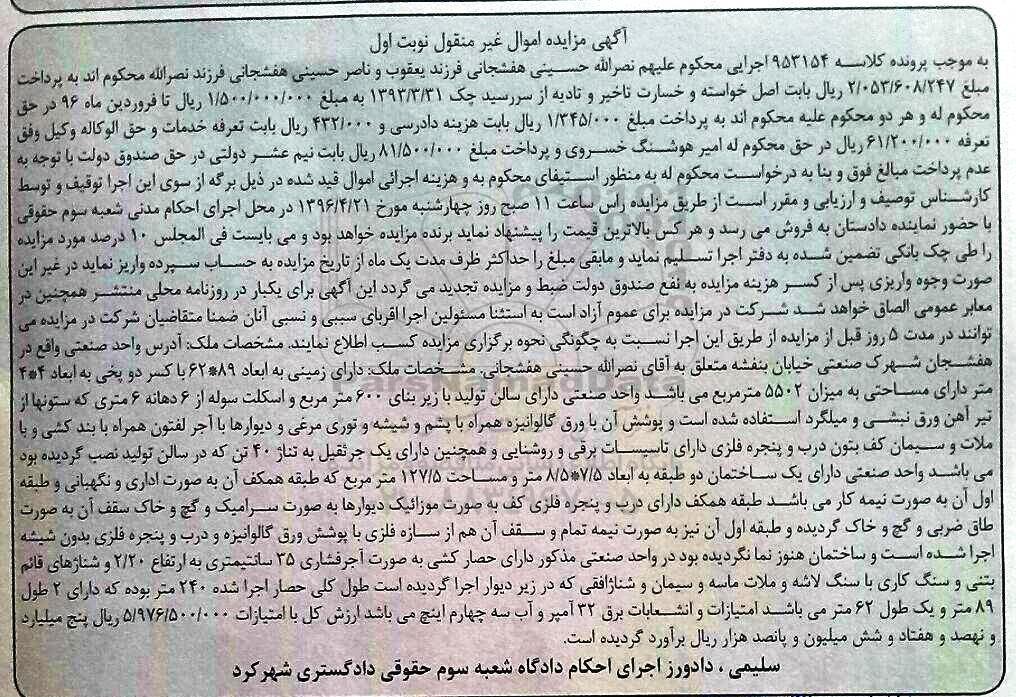 آگهی مزایده اموال غیر منقول نوبت اول
به موجب پرونده کلاسه ۹۵۳۱۵۴ اجرایی محکوم علیهم نصرالله حسینی هفشجانی فرزند یعقوب و ناصر حسینی هفشجانی فرزند نصرالله محکوم اند به پرداخت
مبلغ ۲/۰۵۳/۶۰۸/۲۴۷ ریال بابت اصل خواسته و خسارت تاخیر و تادیه از سررسید چک ۱۳۹۳/۳/۳۱ به مبلغ ۱/۵۰۰/۰۰۰/۰۰۰ ریال تا فروردین ماه ۹۶ در حق
محکوم له و هر دو محکوم علیه محکوم اند به پرداخت مبلغ ۱/۳۴۵/۰۰۰ ریال بابت هزینه دادرسی و ۴۳۲/۰۰۰ ریال بابت تعرفه خدمات و حق الوکاله وکیل وفق
تعرفه ۶۱/۲۰۰/۰۰۰ ریال در حق محکوم له امیر هوشنگ خسروی و پرداخت مبلغ ۸۱/۵۰۰/۰۰۰ ریال بابت نیم عشر دولتی در حق صندوق دولت با توجه به
عدم پرداخت مبالغ فوق و بنا به درخواست محکوم له به منظور استیفای محکوم به و هزینه اجرائی اموال قید شده در ذیل برگه از سوی این اجرا توقیف و توسط
کارشناس توصیف و ارزیابی و مقرر است از طریق مزایده راس ساعت ۱۱ صبح روز چهارشنبه مورخ ۱۳۹۶/۴/۲۱ در محل اجرای احکام مدنی شعبه سوم حقوقی
با حضور نماینده دادستان به فروش می رسد و هر کس بالاترین قیمت را پیشنهاد نماید برنده مزایده خواهد بود و می بایست فی المجلس ۱۰ درصد مورد مزایده
را طی چک بانکی تضمین شده به دفتر اجرا تسلیم نماید و مابقی مبلغ را حداکثر ظرف مدت یک ماه از تاریخ مزایده به حساب سپرده واریز نماید در غیر این
صورت وجوه واریزی پس از کسر هزینه مزایده به نفع صندوق دولت ضبط و مزایده تجدید می گردد این آگهی برای یکبار در روزنامه محلی منتشر همچنین در
معابر عمومی الصاق خواهد شد شرکت در مزایده برای عموم آزاد است به استثنا مسئولین اجرا اقربای سببی و نسبی آنان ضمنا متقاضیان شرکت در مزایده می
توانند در مدت ۵ روز قبل از مزایده از طریق این اجرا نسبت به چگونگی نحوه برگزاری مزایده کسب اطلاع نمایند. مشخصات ملک: آدرس واحد صنعتی واقع در
هفشجان شهرک صنعتی خیابان بنفشه متعلق به آقای نصرالله حسینی هفشجانی. مشخصات ملک: دارای زمینی به ابعاد ۸۹*۶۲ با کسر دو پخی به ابعاد ۴*۴
متر دارای مساحتی به میزان ۵۵۰۲ مترمربع می باشد واحد صنعتی دارای سالن تولید با زیر بنای ۶۰۰ متر مربع و اسکلت سوله از ۶ دهانه ۶ متری که ستونها از
تیر آهن ورق نبشی و میلگرد استفاده شده است و پوشش آن با ورق گالوانیزه همراه با پشم و شیشه و توری مرغی و دیوارها با آجر لفتون همراه با بند کشی و با
ملات و سیمان کف بتون درب و پنجره فلزی دارای تاسیسات برقی و روشنایی و همچنین دارای یک جرثقیل به تناژ ۴۰ تن که در سالن تولید نصب گردیده بود
می باشد واحد صنعتی دارای یک ساختمان دو طبقه به ابعاد ۷/۵*۸/۵ متر و مساحت ۱۲۷/۵ متر مربع که طبقه همکف آن به صورت اداری و نگهبانی و طبقه
اول آن به صورت نیمه کار می باشد طبقه همکف دارای درب و پنجره فلزی کف به صورت موزائیک دیوارها به صورت سرامیک و گچ و خاک سقف آن به صورت
طاق ضربی و گچ و خاک گردیده و طبقه اول آن نیز به صورت نیمه تمام و سقف آن هم از سازه فلزی با پوشش ورق گالوانیزه و درب و پنجره فلزی بدون شیشه
اجرا شده است و ساختمان هنوز نما نگردیده بود در واحد صنعتی مذکور دارای حصار کشی به صورت آجرفشاری ۳۵ سانتیمتری به ارتفاع ۲/۲۰ و شناژهای قائم
بتنی و سنگ کاری با سنگ لاشه و ملات ماسه و سیمان و شناژافقی که در زیر دیوار اجرا گردیده است طول کلی حصار اجرا شده ۲۴۰ متر بوده که دارای ۲ طول
۸۹ متر و یک طول ۶۲ متر می باشد امتیازات و انشعابات برق ۳۲ آمپر و آب سه چهارم اینچ می باشد ارزش کل با امتیازات ۵/۹۷۶/۵۰۰/۰۰۰ ریال پنج میلیارد
و نهصد و هفتاد و شش میلیون و پانصد هزار ریال برآورد گردیده است.
سلیمی ، دادورز اجرای احکام دادگاه شعبه سوم حقوقی دادگستری شهرکرد
ParsNamadData